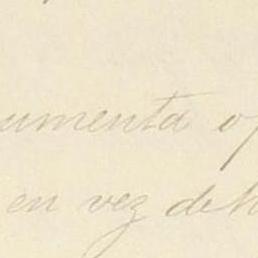 umenta of
en vez deh